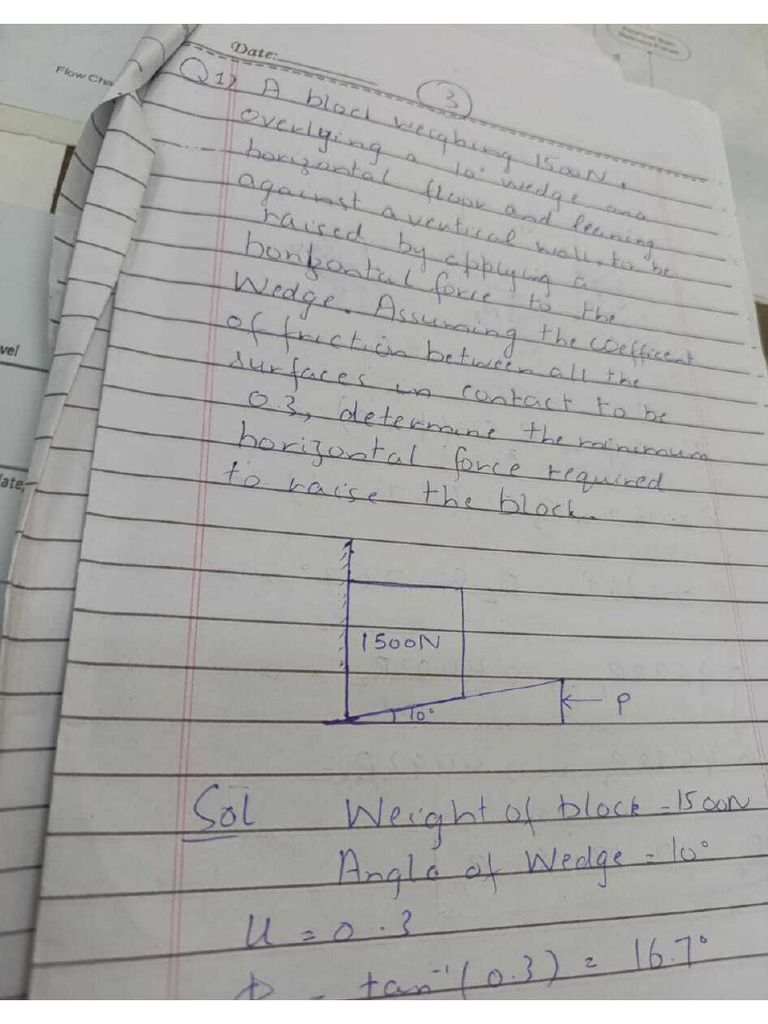 Flow Cha
Date:
3
Q1) A block weighing 1500N,
overlying a 10° wedge and
horizontal floor and leaning
against a vertical wall, to be
raised by applying a
horizontal force to the
Wedge. Assuming the coefficent
of friction between all the
surfaces in contact to be
0.3, determine the minimum
horizontal force required
to raise the block.
1500N
10°
P
vel
late,
Sol Weight of block = 1500N
Angle of Wedge = 10°
U = 0.3
= tan⁻¹(0.3) = 16.7°